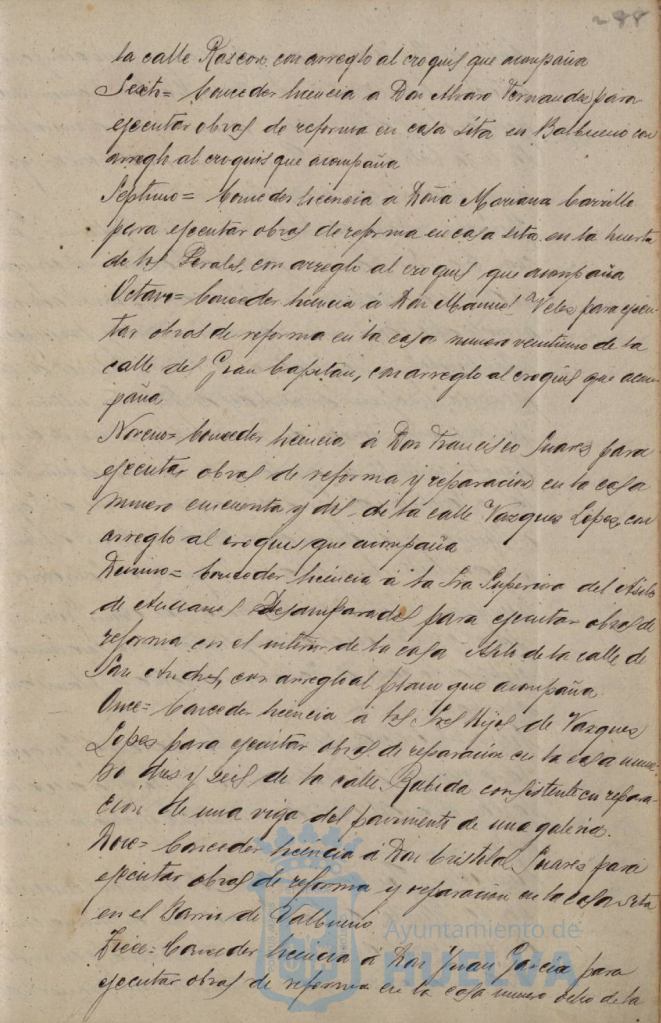 288
la calle Rascon, con arreglo al croquis que acompaña
Sexto= Conceder licencia á Don Alvaro Fernandez para
ejecutar obras de reforma en casa sita en Balbueno con
arreglo al croquis que acompaña
Septimo= Conceder licencia á Doña Mariana Carrillo
para ejecutar obras de reforma en casa sita en la huerta
de los Perales, con arreglo al croquis que acompaña
Octavo= Conceder licencia á Don Manuel Velez para ejecu-
tar obras de reforma en la casa numero veintiuno de la
calle del Gran Capitan, con arreglo al croquis que acom-
paña
Noveno= Conceder licencia á Don Francisco Suarez para
ejecutar obras de reforma y reparación en la casa
numero cincuenta y dos de la calle Vazquez Lopez, con
arreglo al croquis que acompaña
Decimo= Conceder licencia á la Sra Superiora del Asilo
de Ancianos Desamparados para ejecutar obras de
reforma en el interior de la casa Asilo de la calle de
San Andres, con arreglo al plano que acompaña
Once= Conceder licencia á los Sres Hijos de Vazquez
Lopez para ejecutar obras de reparación en la casa nume-
ro diez y seis de la calle Rabida consistente en repara-
ción de una viga del pavimento de una galeria.
Doce= Conceder licencia á Don Cristobal Suarez para
ejecutar obras de reforma y reparación en la casa sita
en el Barrio de Valbueno
Trece= Conceder licencia á Don Juan Garcia para
ejecutar obras de reforma en la casa numero ocho de la
Ayuntamiento de
HUELVA